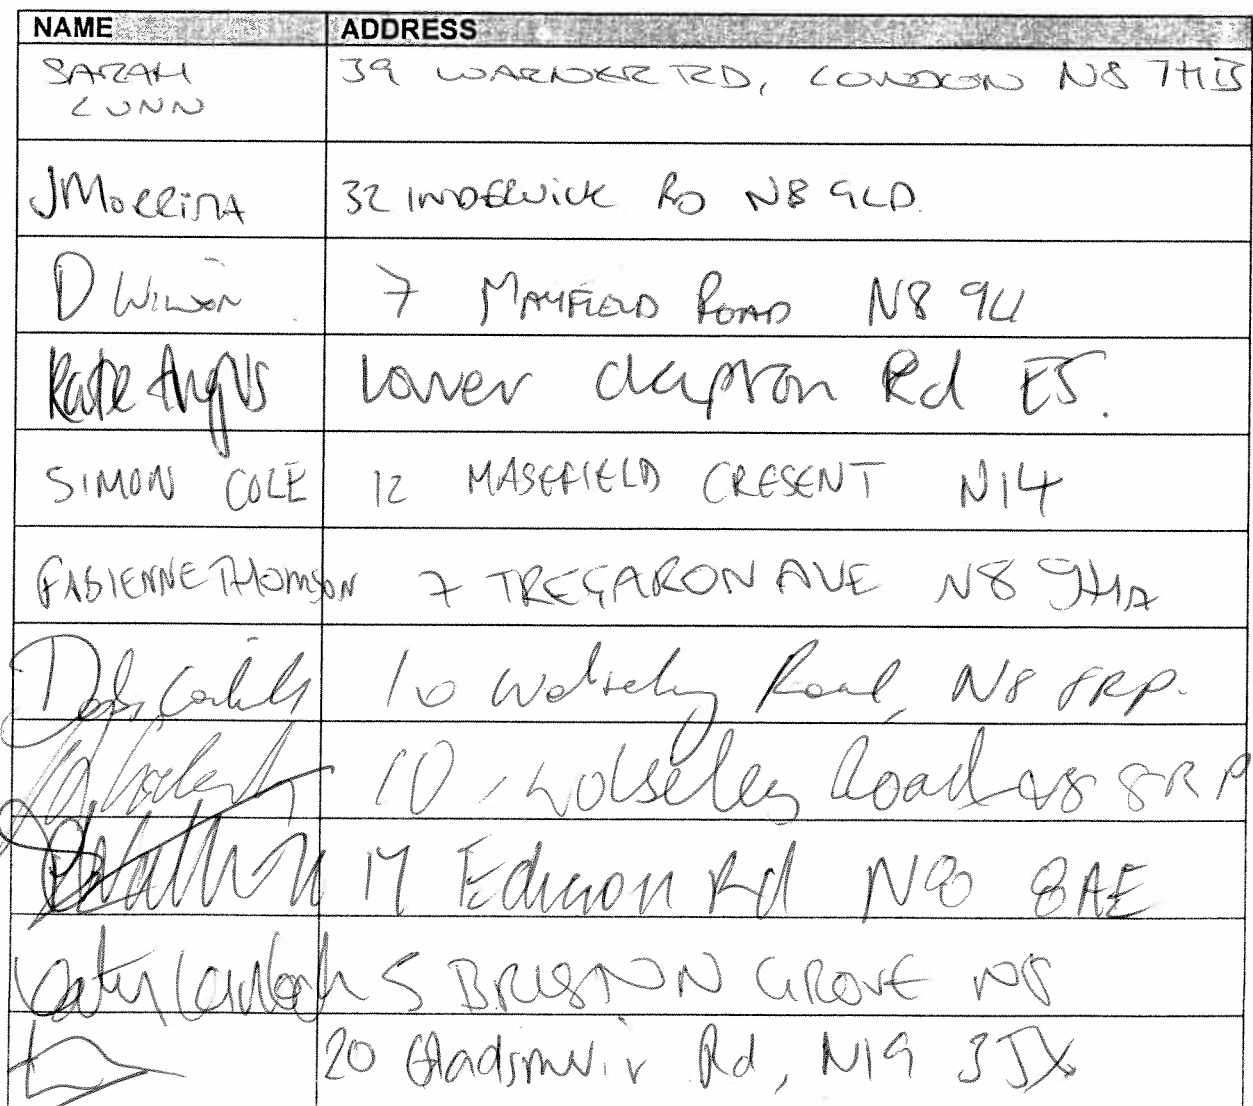 NAME ADDRESS
SARAH 39 WARNER RD, LONDON N8 7HB
LUNN
JMollina 32 INDERWICK RD N8 9LD
D WILSON 7 MAYFIELD ROAD N8 9LL
Katie Angus Lower clapton Rd E5.
SIMON COLE 12 MASEFIELD CRESENT N14
FABIENNE THOMSON 7 TREGARON AVE N8 9HA
10 Wolseley Road, N8 8RP.
10, Wolseley Road N8 8RP
17 Edison Rd N8 8AE
Katy 5 GROVE N8
20 Gladsmuir Rd, N19 3JX